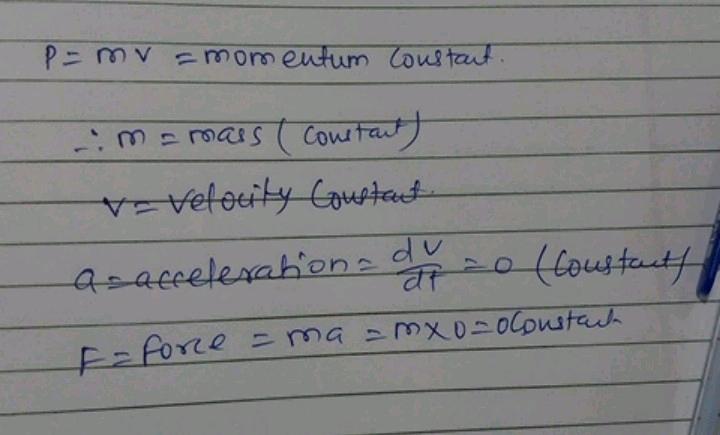 P = mv = momentum constant.
∴ m = mass (constant)
v = velocity constant.
a = acceleration = dv/dt = 0 (constant)
F = force = ma = m×0 = 0 constant